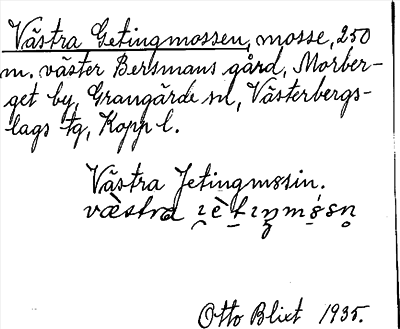 Västra Getingmossen, mosse, 250
m. väster Bersmans gård, Morber-
get by, Grangärde sn, Västerbergs-
lags tg, Kopp l.
Västra Jetingmosin.
Otto Blixt 1935.